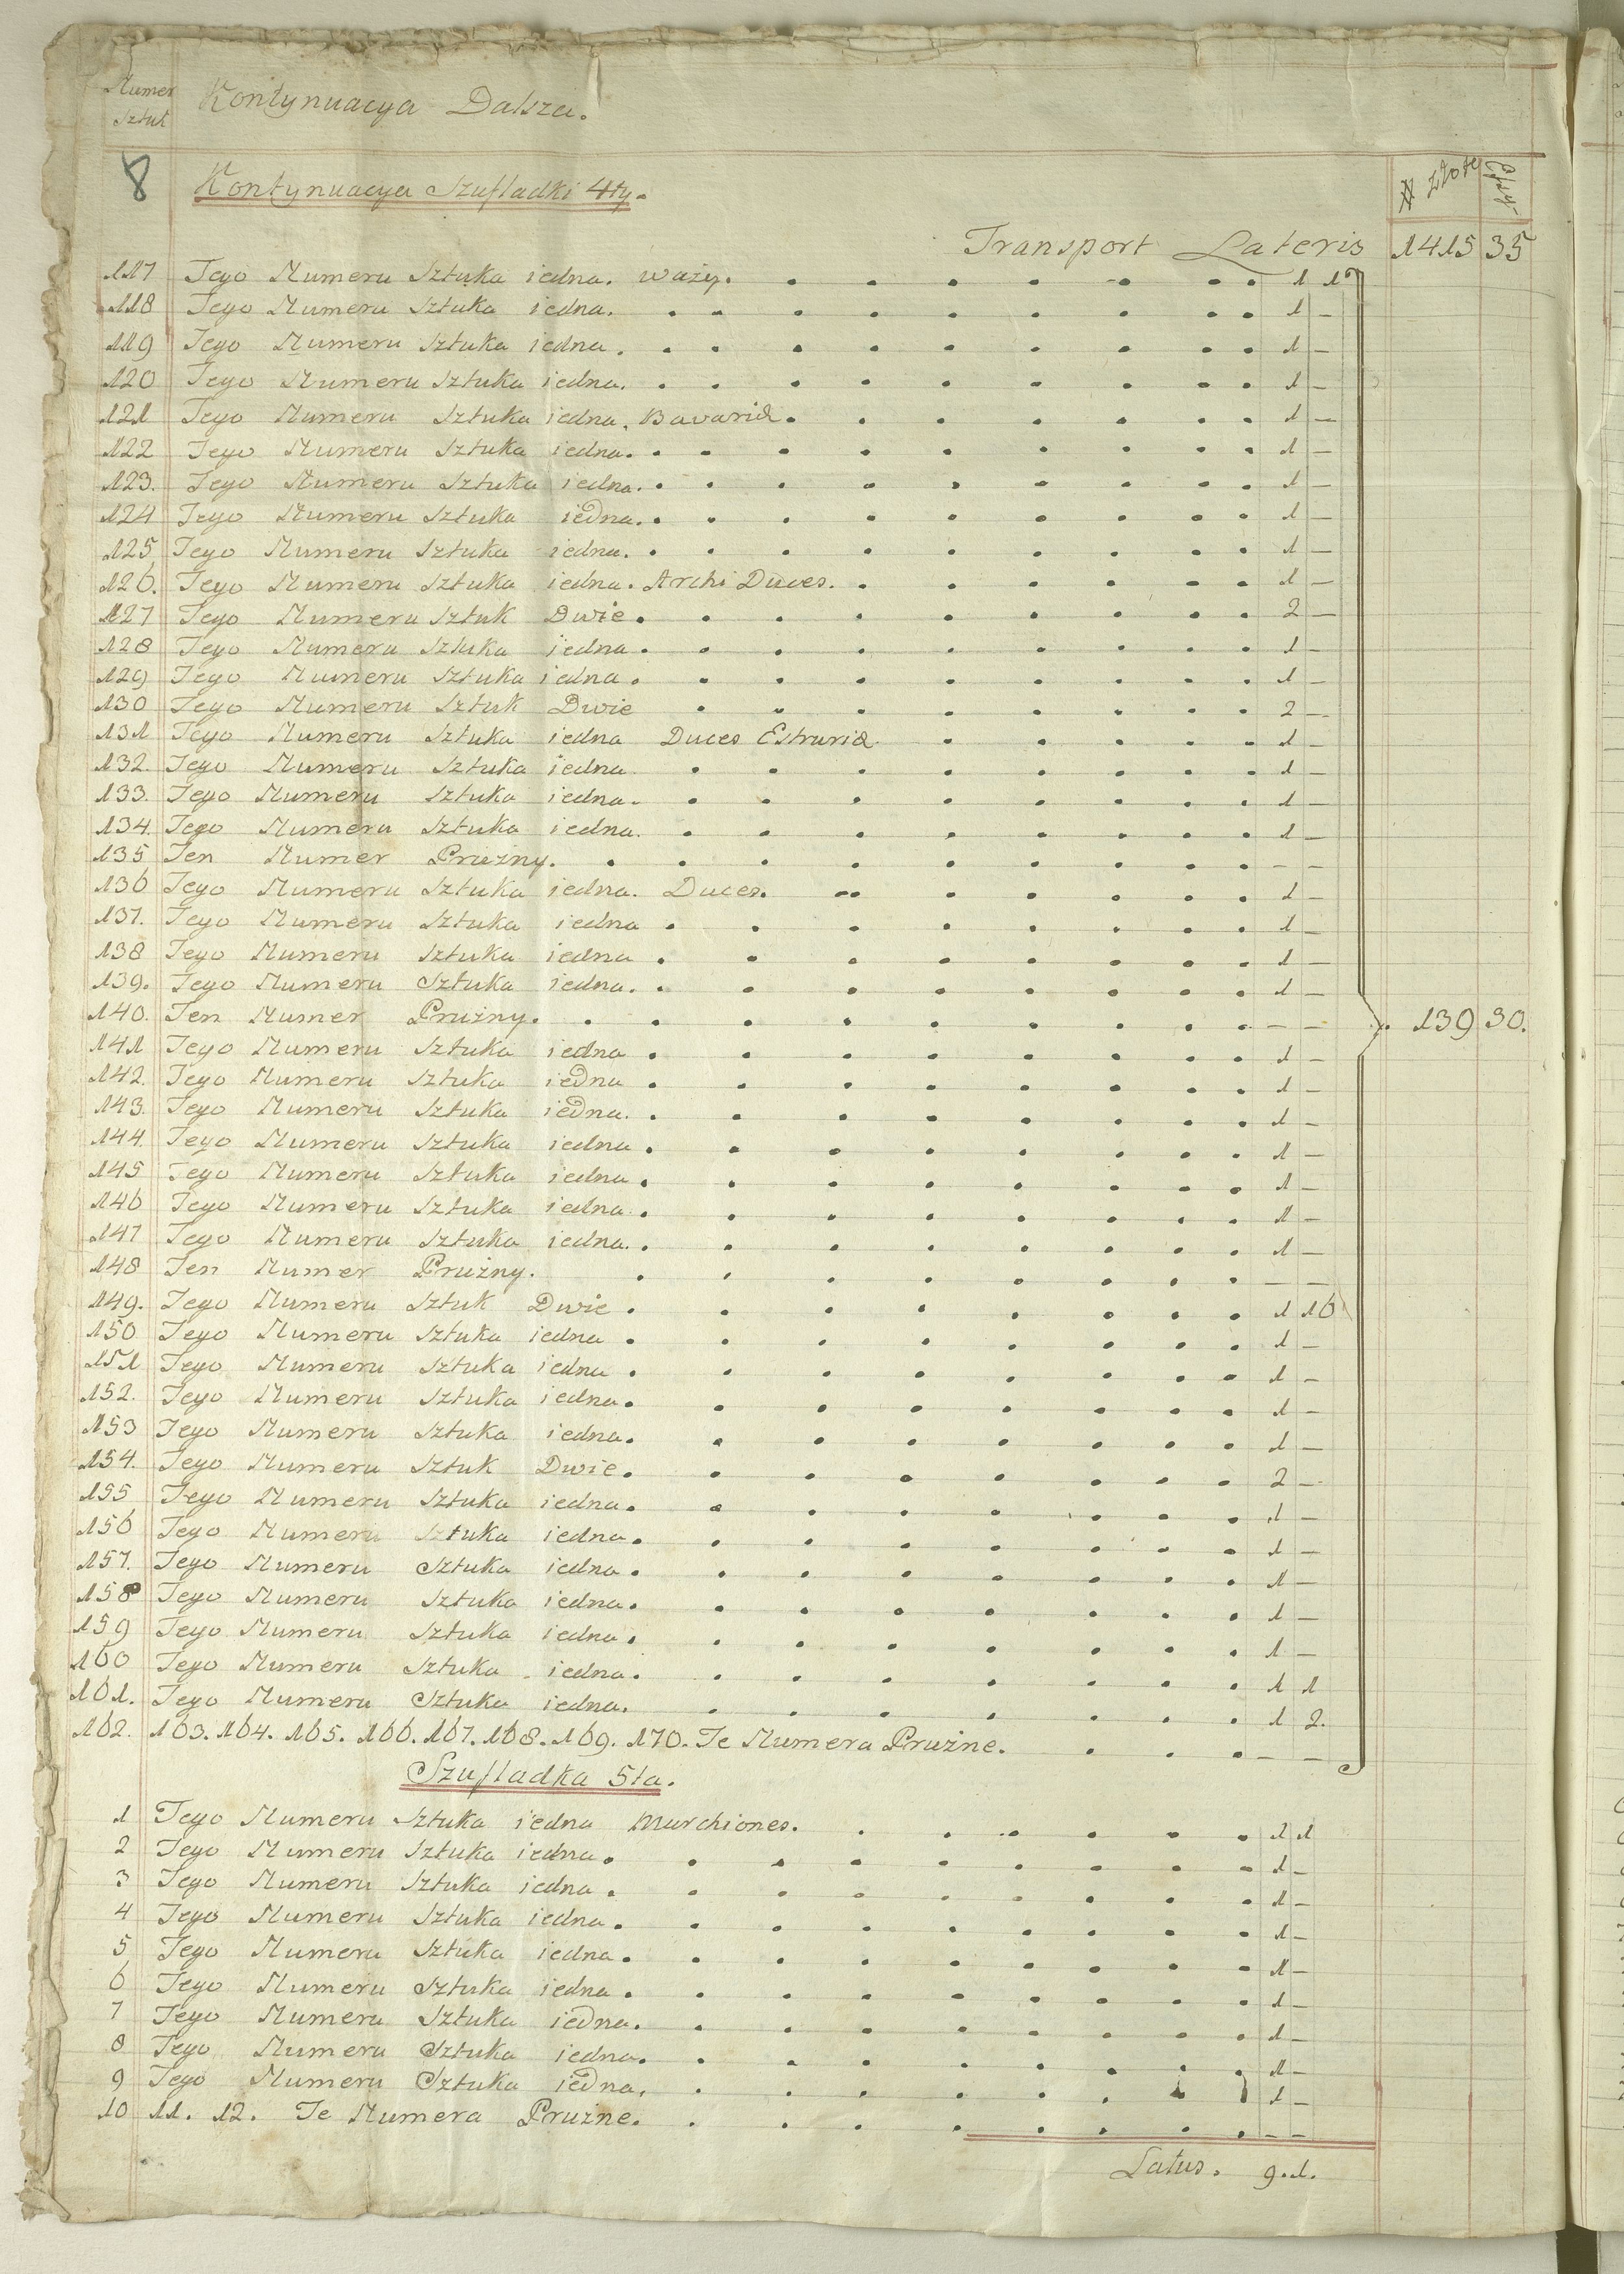 Numer Sztuk Kontynuacya Dalsza.
8 Kontynuacya Szufladki 4ty. # złote Essy
Transport Lateris 1415 35
117 Tego Numeru Sztuka iedna. waży. 1 1
118 Tego Numeru Sztuka iedna. 1 —
119 Tego Numeru Sztuka iedna. 1 —
120 Tego Numeru Sztuka iedna. 1 —
121 Tego Numeru Sztuka iedna. Bavariæ. 1 —
122 Tego Numeru Sztuka iedna. 1 —
123. Tego Numeru Sztuka iedna. 1 —
124 Tego Numeru Sztuka iedna. 1 —
125 Tego Numeru Sztuka iedna. 1 —
126. Tego Numeru Sztuka iedna. Archi Duces. 1 —
127 Tego Numeru Sztuk Dwie. 2 —
128 Tego Numeru Sztuka iedna. 1 —
129 Tego Numeru Sztuka iedna. 1 —
130 Tego Numeru Sztuk Dwie 2 —
131 Tego Numeru Sztuka iedna Duces Estruriæ. 1 —
132. Tego Numeru Sztuka iedna. 1 —
133. Tego Numeru Sztuka iedna. 1 —
134. Tego Numeru Sztuka iedna. 1 —
135 Ten Numer Prużny. — —
136 Tego Numeru Sztuka iedna. Duces. 1 —
137. Tego Numeru Sztuka iedna 1 —
138 Tego Numeru Sztuka iedna 1 —
139. Tego Numeru Sztuka iedna. 1 —
140. Ten Numer Prużny. — — 139 30.
141 Tego Numeru Sztuka iedna 1 —
142. Tego Numeru Sztuka iedna 1 —
143. Tego Numeru Sztuka iedna. 1 —
144. Tego Numeru Sztuka iedna. 1 —
145 Tego Numeru Sztuka iedna. 1 —
146 Tego Numeru Sztuka iedna. 1 —
147 Tego Numeru Sztuka iedna. 1 —
148 Ten Numer Prużny. — —
149. Tego Numeru Sztuk Dwie. 1 16
150 Tego Numeru Sztuka iedna 1 —
151 Tego Numeru Sztuka iedna 1 —
152. Tego Numeru Sztuka iedna. 1 —
153 Tego Numeru Sztuka iedna. 1 —
154. Tego Numeru Sztuk Dwie. 2 —
155 Tego Numeru Sztuka iedna. 1 —
156 Tego Numeru Sztuka iedna. 1 —
157. Tego Numeru Sztuka iedna. 1 —
158 Tego Numeru Sztuka iedna. 1 —
159 Tego Numeru Sztuka iedna. 1 —
160 Tego Numeru Sztuka iedna. 1 1
161. Tego Numeru Sztuka iedna. 1 2.
162. 163. 164. 165. 166. 167. 168. 169. 170. Te Numera Prużne. — —
Szufladka 5ta.
1 Tego Numeru Sztuka iedna Marchiones. 1 1
2 Tego Numeru Sztuka iedna. 1 —
3 Tego Numeru Sztuka iedna. 1 —
4 Tego Numeru Sztuka iedna. 1 —
5 Tego Numeru Sztuka iedna. 1 —
6 Tego Numeru Sztuka iedna. 1 —
7 Tego Numeru Sztuka iedna. 1 —
8 Tego Numeru Sztuka iedna. 1 —
9 Tego Numeru Sztuka iedna. 1 —
10 11. 12. Te Numera Prużne. — —
Latus. 9.1.